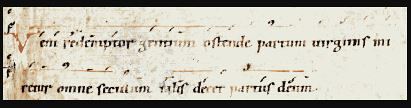 Veni redemptor gentium ostende partum uirginis mi
retur omne seculum talis decet partus deum